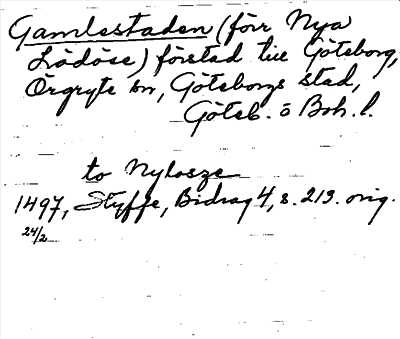 Gamlestaden (förr Nya
Lödöse) förstad till Göteborg,
Örgryte sn, Göteborgs stad,
Göteb. o Boh. l.
to Nylosze
1497, Styffe, Bidrag 4, s. 219. orig.
24/2